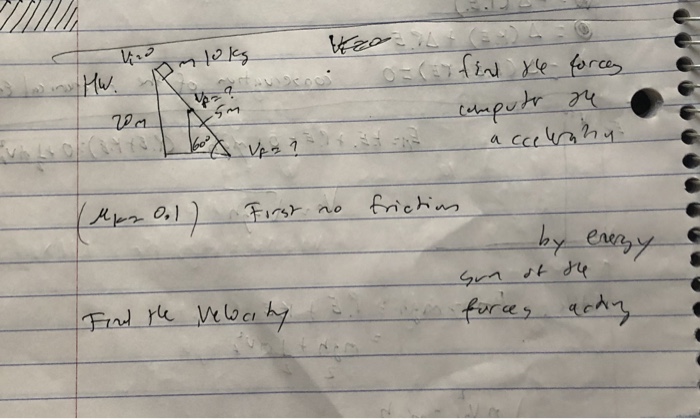 Vi=0
m 10kg
HW.
find the forces
Vf=?
5m
20m
compute the
acceleration
60°
Vf=?
(μk= 0.1) First no friction
by energy
sum of the
Find the Velocity
forces acting